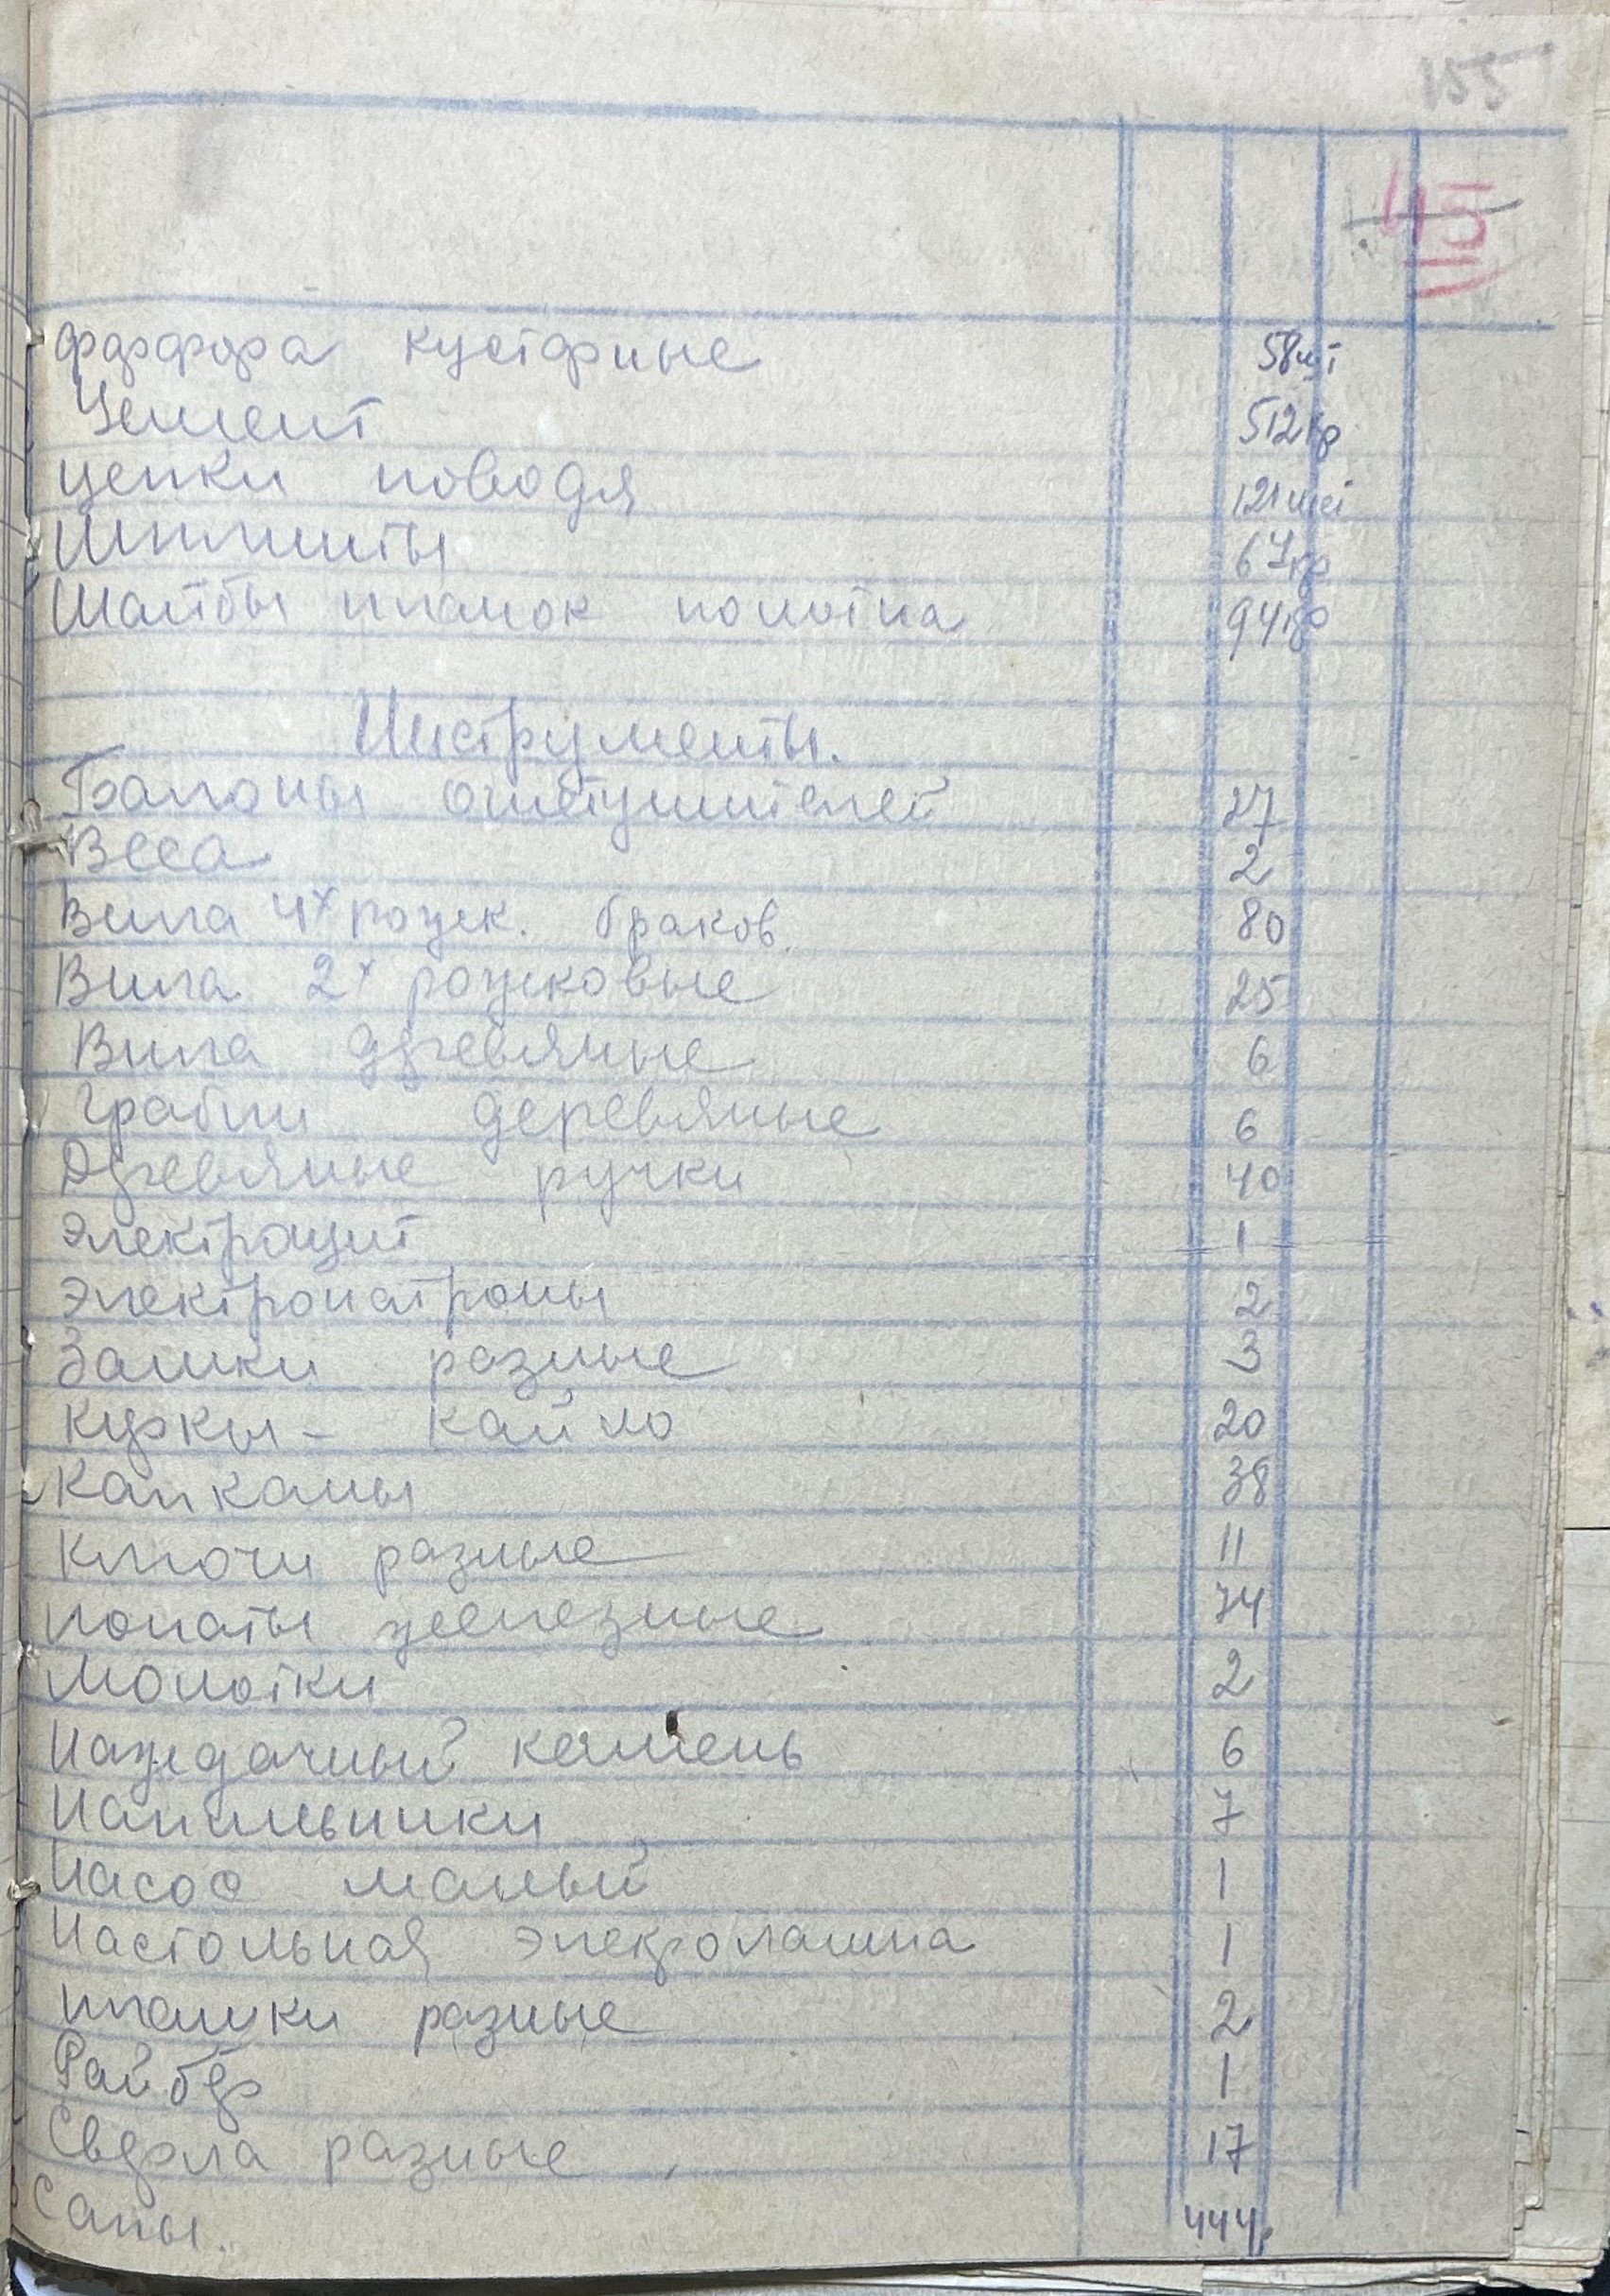 155
45
фарфора кустарные 58 шт
Цемент 512 кр
цепки поводя 121 шт
Шплинты 67 кр
Шайбы планок полотна 94 кр
Инструменты.
Балоны огнетушителей 27
Веса 2
Вила 4х рожек. браков. 80
Вила 2х рожковые 25
Вила деревяные 6
Грабли деревяные 6
Деревяные ручки 40
Электрощит 1
Электропатроны 2
Замки разные 3
Куркы - Кайло 20
Капканы 38
Ключи разные 11
Лопаты железные 74
Молотки 2
Наждачный камень 6
Напильники 7
Насос малый 1
Настольная элекролампа 1
плашки разные 2
Райбер 1
Сверла разные 17
Сапы. 444